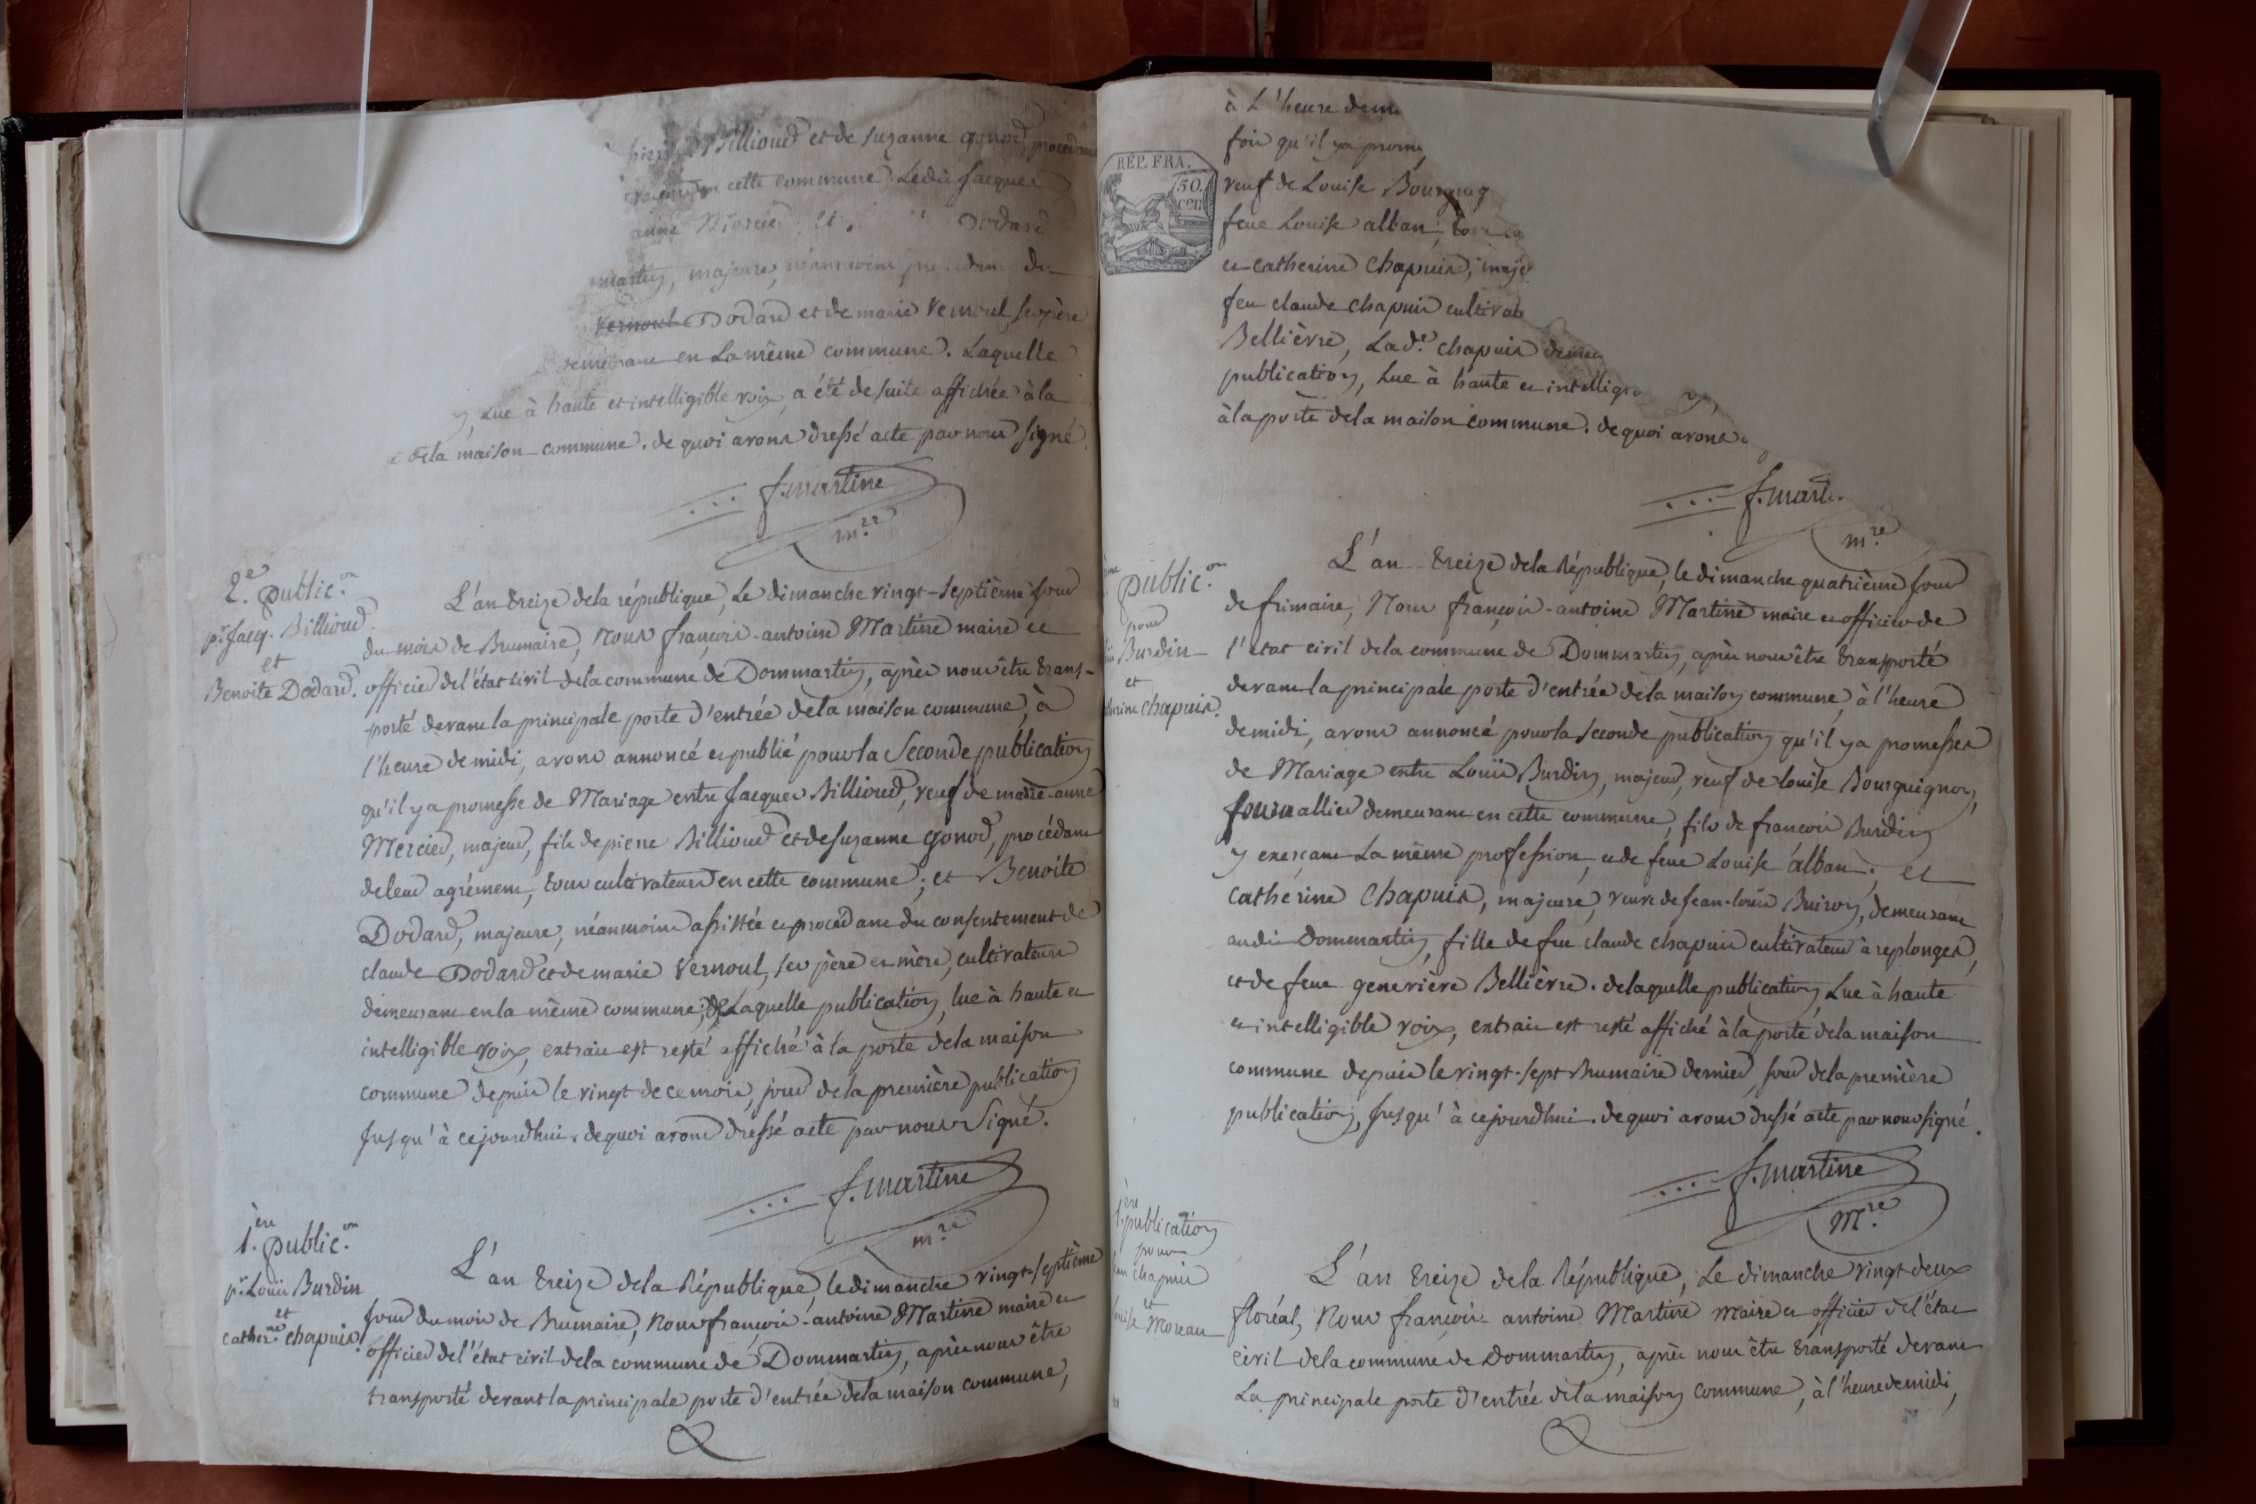 Billioud et de suzanne gonod, procédant
cette commune. Ledit Jacques
anne Mercier. et Dodard
martin, majeure, néanmoins du
Vernoul Dodard et de marie Vernoul, ses père
demeurant en La même commune. Laquelle
Lue à haute et intelligible voix, a été de suite affichée à la
de la maison commune. de quoi avons dressé acte par nous signé.
f. martine
m.re
2.e public.on
p.r Jacq. Billioud
et
Benoite Dodard.
L'an treize de la république, Le dimanche vingt-septième jour
du mois de Brumaire, Nous françois-antoine Martine maire et
officier de l'état civil de la commune de Dommartin, après nous être trans-
porté devant la principale porte d'entrée de la maison commune, à
l'heure de midi, avons annoncé et publié pour la Seconde publication
qu'il y a promesse de Mariage entre Jacques Billioud, veuf de marie-anne
Mercier, majeur, fils de pierre Billioud et de suzanne gonod, procédant
de leur agrément, tous cultivateurs en cette commune; et Benoite
Dodard, majeure, néanmoins assistée et procédant du consentement de
claude Dodard et de marie Vernoul, ses père et mère, cultivateurs
demeurant en la même commune; de Laquelle publication, lue à haute et
intelligible voix, extrait est resté affiché à la porte de la maison
commune depuis le vingt de ce mois, jour de la première publication
Jusqu'à cejourdhui. de quoi avons dressé acte par nous Signé.
f. martine
m.re
1.ere public.on
p.r Louis Burdin
et
cather.ne chapuis.
L'an treize de la République, le dimanche vingt-septième
jour du mois de Brumaire, Nous françois-antoine Martine maire et
officier de l'état civil de la commune de Dommartin, après nous être
transporté devant la principale porte d'entrée de la maison commune,
à L'heure de m
fois qu'il y a prom
RÉP. FRA.
50
cen
veuf de Louise Bourguig
feue Louise alban;
et catherine chapuis, maje
feu claude chapuis cultivat
Bellièvre, La d.e chapuis demeu
publication, Lue à haute et intelligi
à la porte de la maison commune. de quoi avons
f. mart
m.re
public.on
pour
Burdin
et
chapuis.
L'an treize de la République, le dimanche quatrième jour
de frimaire, Nous françois-antoine Martine maire et officier de
l'état civil de la commune de Dommartin, après nous être transporté
devant la principale porte d'entrée de la maison commune, à l'heure
de midi, avons annoncé pour la seconde publication qu'il y a promesses
de Mariage entre Louis Burdin, majeur, veuf de louise Bourguignon,
journallier demeurant en cette commune, fils de françois Burdin
y exerçant La même profession, et de feue Louise alban; et
Catherine Chapuis, majeure, veuve de jean-louis Buiron, demeurant
audit Dommartin, fille de feu claude chapuis cultivateur à replonges,
et de feue geneviève Bellièvre. de laquelle publication, Lue à haute
et intelligible voix, extrait est resté affiché à la porte de la maison
commune depuis le vingt-sept Brumaire dernier, jour de la première
publication, Jusqu'à cejourdhui. de quoi avons dressé acte par nous signé.
f. martine
M.re
1.ère publication
pour
chapuis
et
Moreau
L'an treize de la République, Le dimanche vingt-deux
floréal, Nous françois-antoine Martine Maire et officier de l'état
civil de la commune de Dommartin, après nous être transporté devant
La principale porte d'entrée de la maison commune, à l'heure de midi,